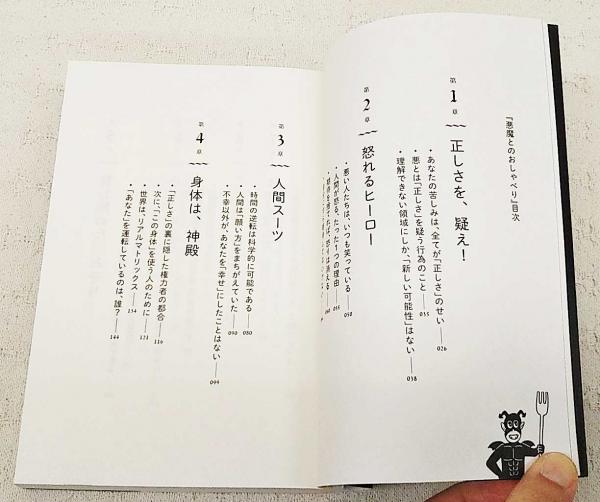 『悪魔とのおしゃべり』目次
第1章 正しさを、疑え!
・あなたの苦しみは、全てが「正しさ」のせい 026
・悪とは「正しさ」を疑う行為のこと 035
・理解できない領域にしか、「新しい可能性」はない 038
第2章 怒れるヒーロー
・悪い人たちは、いつも笑っている 050
・人間が怒る、たった1つの理由
・期待を捨てれば、怒りは消える
第3章 人間スーツ
・時間の逆転は科学的に可能である 080
・人間は「願い方」をまちがえていた 090
・不幸以外が、あなたを「幸せ」にしたことはない 099
第4章 身体は、神殿
・「正しさ」の裏に隠した権力者の都合 116
・次に、「この身体」を使う人のために 121
・世界は、リアルマトリックス 134
・「あなた」を運転しているのは、誰? 144